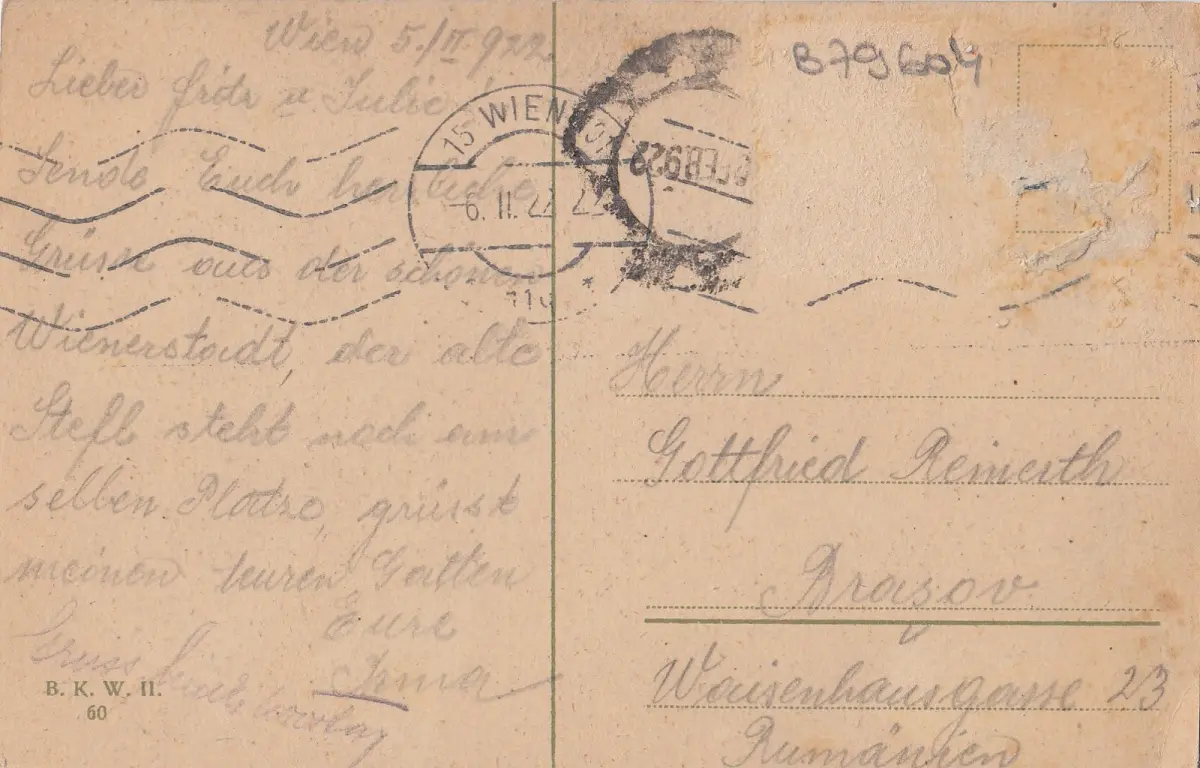 Wien 5./II 922.
Lieber Fritz u Julie
Sende Euch herzliche
Grüsse aus der schönen
Wienerstadt, der alte
Stefl steht noch am
selben Platze, grüsst
meinen teuren Gatten
Eure
Irma
Gruss
B. K. W. II.
60
15 WIEN
-6. II. 22
110
FEB 922
B79604
Herrn
Gottfried Reimerth
Brasov
Waisenhausgasse 23
Rumänien